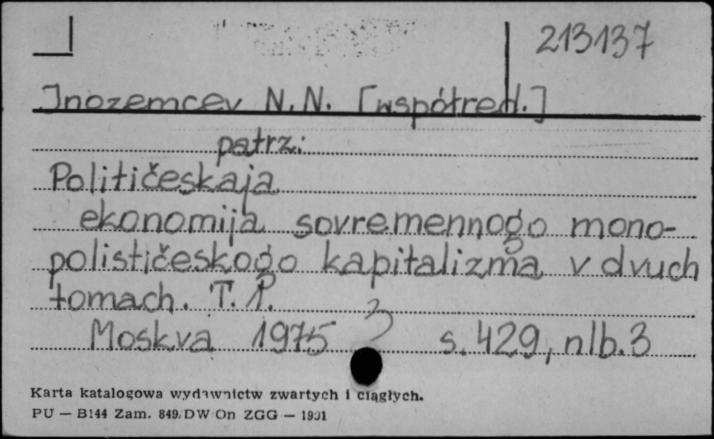 213137
Inozemcev N.N. [współred.]
patrz:
Političeskaja
ekonomija sovremennogo mono-
polističeskogo kapitalizma v dvuch
tomach. T. 1.
Moskva 1975 s. 429, nlb. 3
Karta katalogowa wydawnictw zwartych i ciągłych.
PU — B144 Zam. 849. DW On ZGG —